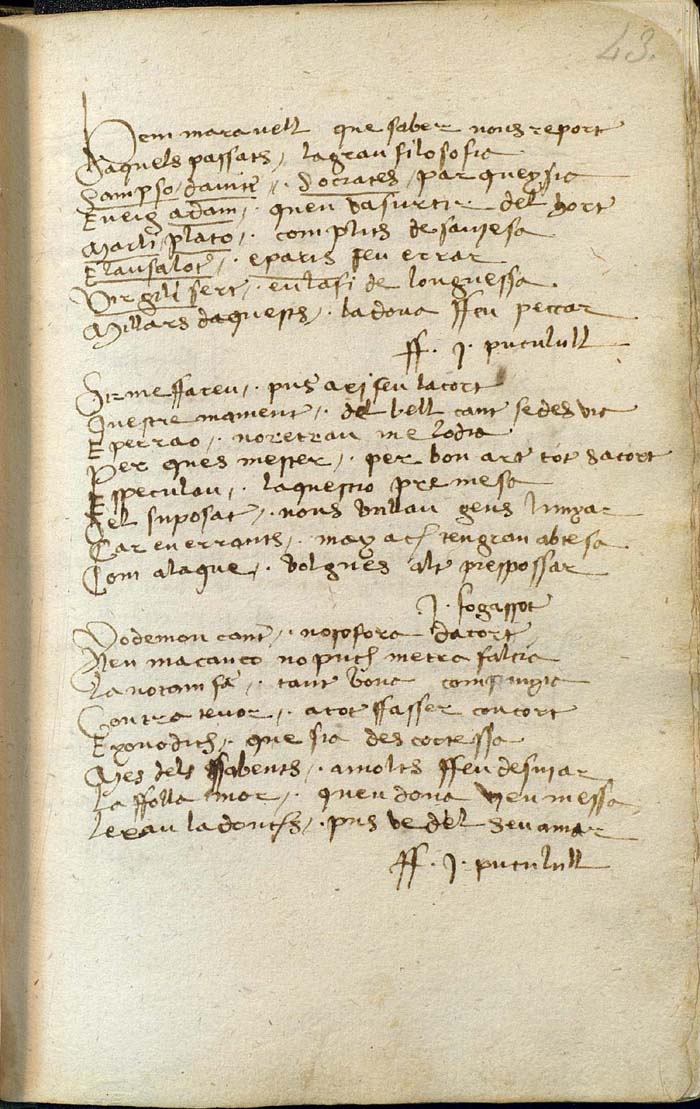 43.
Nom maravell que saber nous report
Daquels passats, la gran filosofia
Sampso, davit, Socrates, par queysia
E veig adam, quen va surtir del hort
Marli plato, complits de saviesa
E lansalot, e paris feu errar
Virgili fert, en lasi de longuessa
Millars daquests, la dona ffeu peccar
ff. J. puculull
Si me ffareu, pus axi feu lacort
Questre mament, del bell cant se desvie
E per rao, no retrau melodia
Per ques mester, per bon art tot sacort
E speculau, la questio premesa
Cel suposat, nous vullau gens lunyar
Car en errants, may ach tengran abtesa
Com ala que, volgues alt prespossar
J. fogassot
Vo de mon cant, no so fora dacort
Nen ma canco no puch metra falcia
La nota'm fa, tant bona companyia
Contra tenor, a tot ffasser concort
E ponodich, que sia descortessa
Mes dels ssabents, a molts ffeu desviar
La ffolla mor, quen dona veu messa
Lexau la donchs, pus ve del seu amar
ff. J. puculull